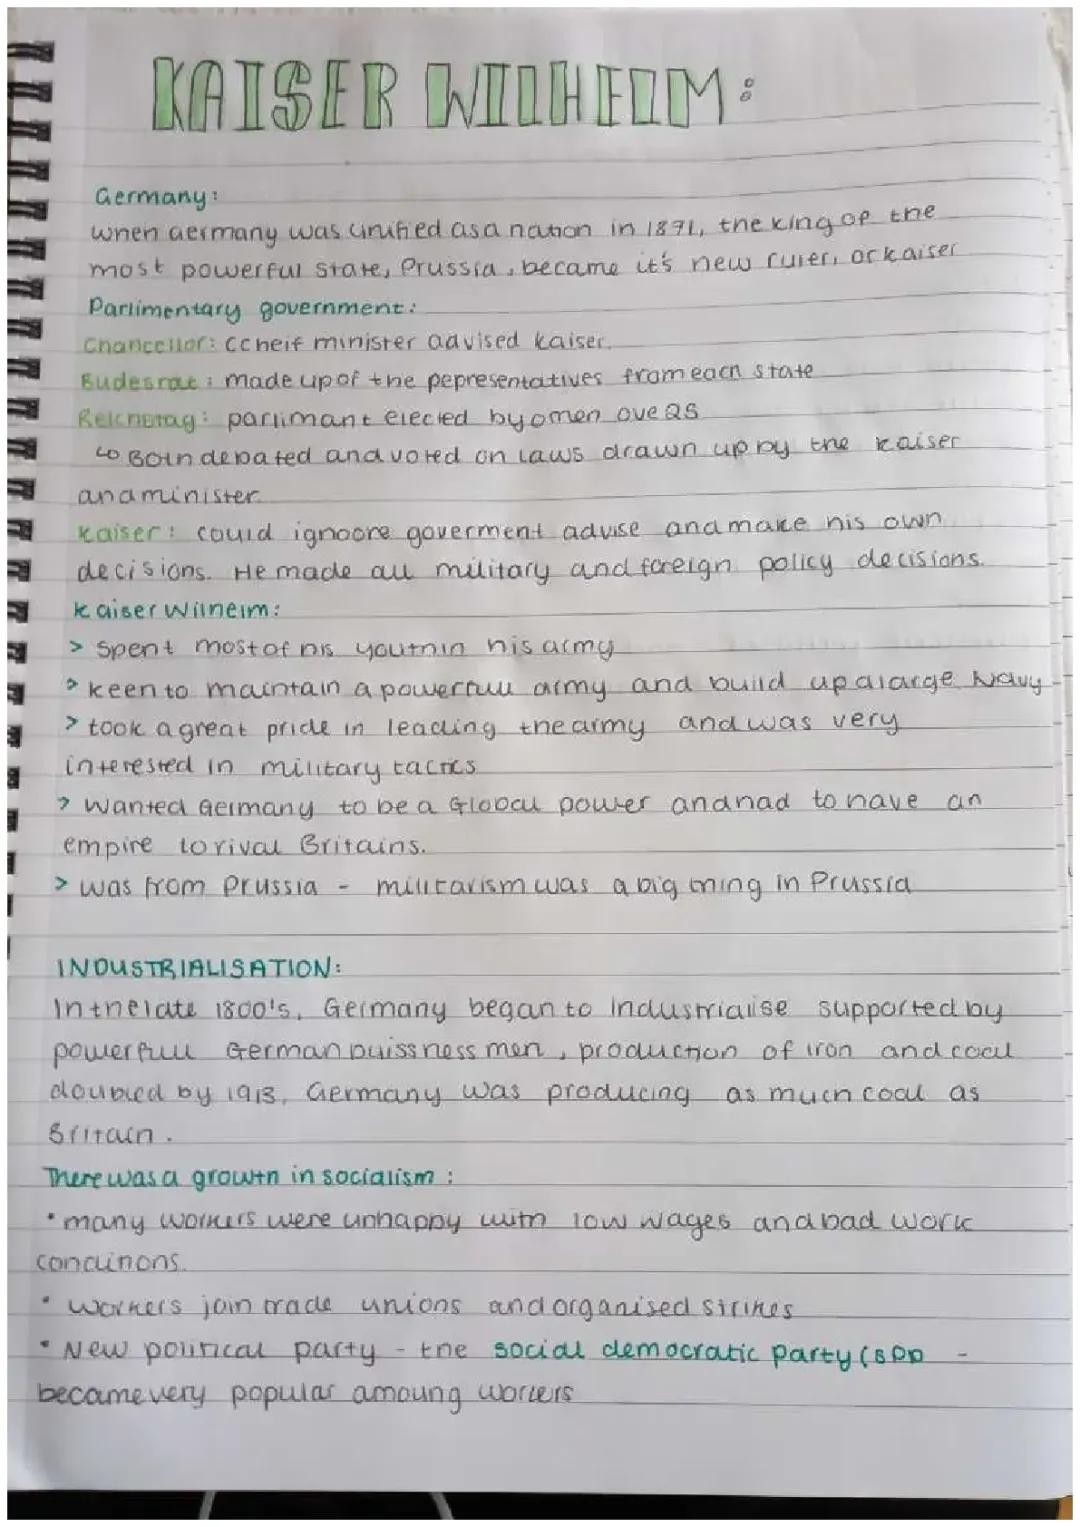 KAISER WILHELM:
Germany:
when Germany was unified as a nation in 1871, the king of the
most powerful state, Prussia, became it's new ruler, or kaiser
Parlimentary government:
Chancellor: ccheif minister advised kaiser.
Budesrat: made up of the pepresentatives from each state
Reichstag: parlimant elected by omen ove 25
↳ Both debated and voted on laws drawn up by the kaiser
and minister.
kaiser: could ignoore goverment advise and make his own
decisions. He made all military and foreign policy decisions.
kaiser Wilhelm:
> Spent most of his youth in his army
> keen to maintain a powerfull army and build up a large Navy
> took a great pride in leading the army and was very
interested in military tactics
> Wanted Germany to be a Global power and had to have an
empire to rival Britains.
> was from Prussia - militarism was a big thing in Prussia
INDUSTRIALISATION:
In the late 1800's, Germany began to Industrialise supported by
powerfull German buissness men, production of iron and coal
doubled by 1913, Germany was producing as much coal as
Britain.
There was a growth in socialism:
• many workers were unhappy with low wages and bad work
conditions.
• Workers join trade unions and organised strikes
• New political party - the social democratic party (SPD -
became very popular amoung workers